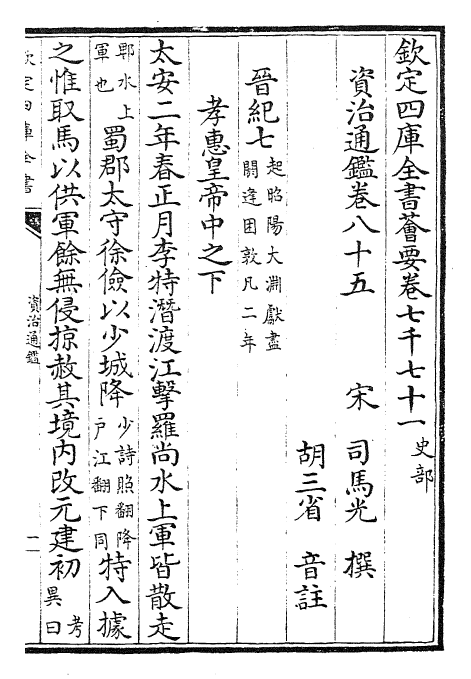 欽定四庫全書薈要卷七千七十一 史部
資治通鑑卷八十五 宋 司馬光 撰
胡三省 音註
晉紀七 起昭陽大淵獻盡閼逢困敦凡二年
孝惠皇帝中之下
太安二年春正月李特潛渡江擊羅尚水上軍皆散走
郫水上軍也 蜀郡太守徐儉以少城降 少詩照翻降戶江翻下同 特入據
之惟取馬以供軍餘無侵掠赦其境内改元建初 考異曰
欽定四庫全書
資治通鑑